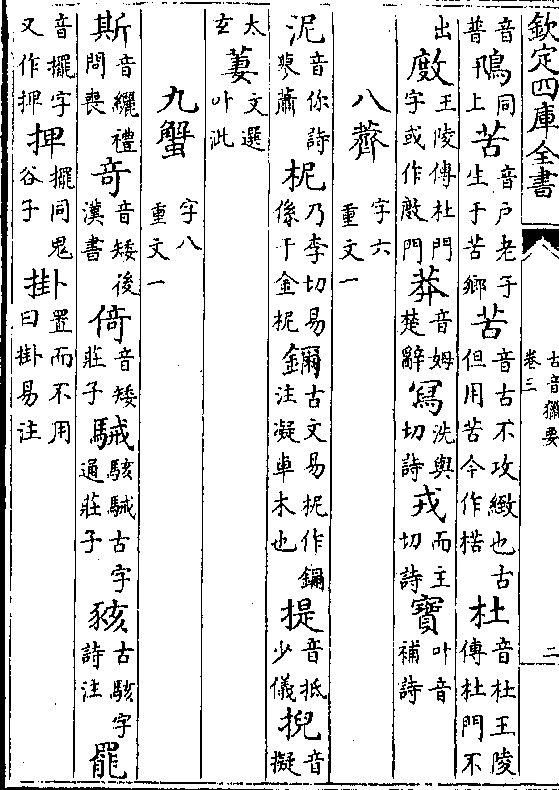 欽定四庫全書
古音獵要
卷三
二
音普鴇同上苦音户老子生于苦鄉苦音古不攻緻也古但用苦今作楛杜音杜王陵傳杜門不
出㪃王陵傳杜門字或作㪃門莽音姆楚辭寫洗與切詩戎而主切詩寶叶音補詩
八薺字六重文一
泥音你詩蓼蕭柅乃李切易係于金柅鑈古文易柅作鑈注凝車木也提音抵少儀掜音擬
太玄萋文選叶泚
九蟹字八重文一
斯音纚禮問喪奇音矮後漢書倚音矮莊子駴駭駴古字通莊子豥古駭字詩注罷
音擺字又作捭捭擺同鬼谷子掛卦置而不用曰掛易注